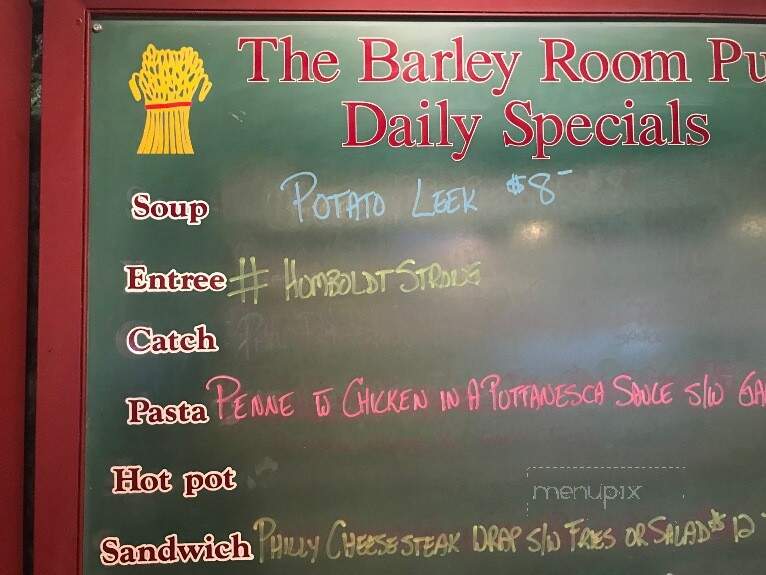 The Barley Room Pu
Daily Specials
Soup POTATO LEEK $8-
Entree # HUMBOLDTSTRONG
Catch
Pasta PENNE W CHICKEN IN A PUTTANESCA SAUCE S/W GA
Hot pot
menupix
Sandwich PHILLY CHEESESTEAK WRAP S/W FRIES OR SALAD $12